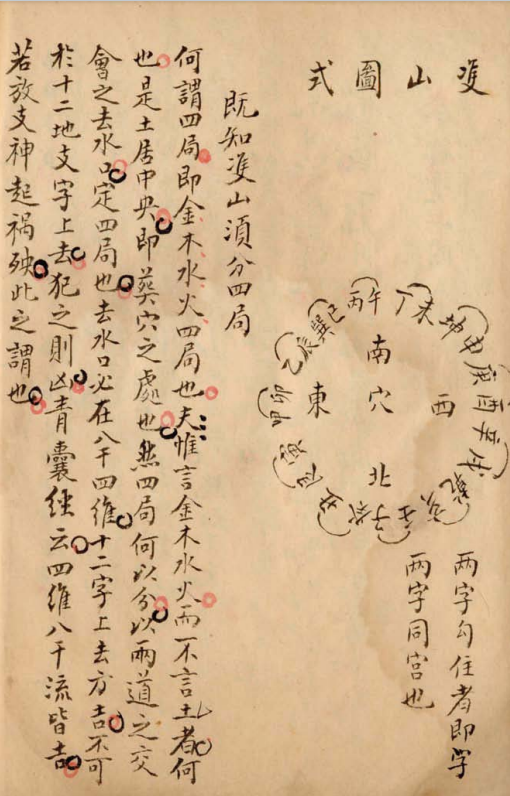 双山圖式
南
西
穴
東
北
丙午
丁未
坤申
庚酉
辛戌
乾亥
壬子
癸丑
艮寅
甲卯
乙辰
巽巳
两字勾住者即字
两字同宮也
既知双山須分四局
何謂四局即金木水火四局也夫惟言金木水火而不言土者何
也是土居中央即葵穴之處也然四局何以分以兩道之交
會之去水口定四局也去水口必在八干四維十二字上去方吉不可
於十二地支字上去犯之則凶青囊經云四維八干流皆吉
若放支神起禍殃此之謂也